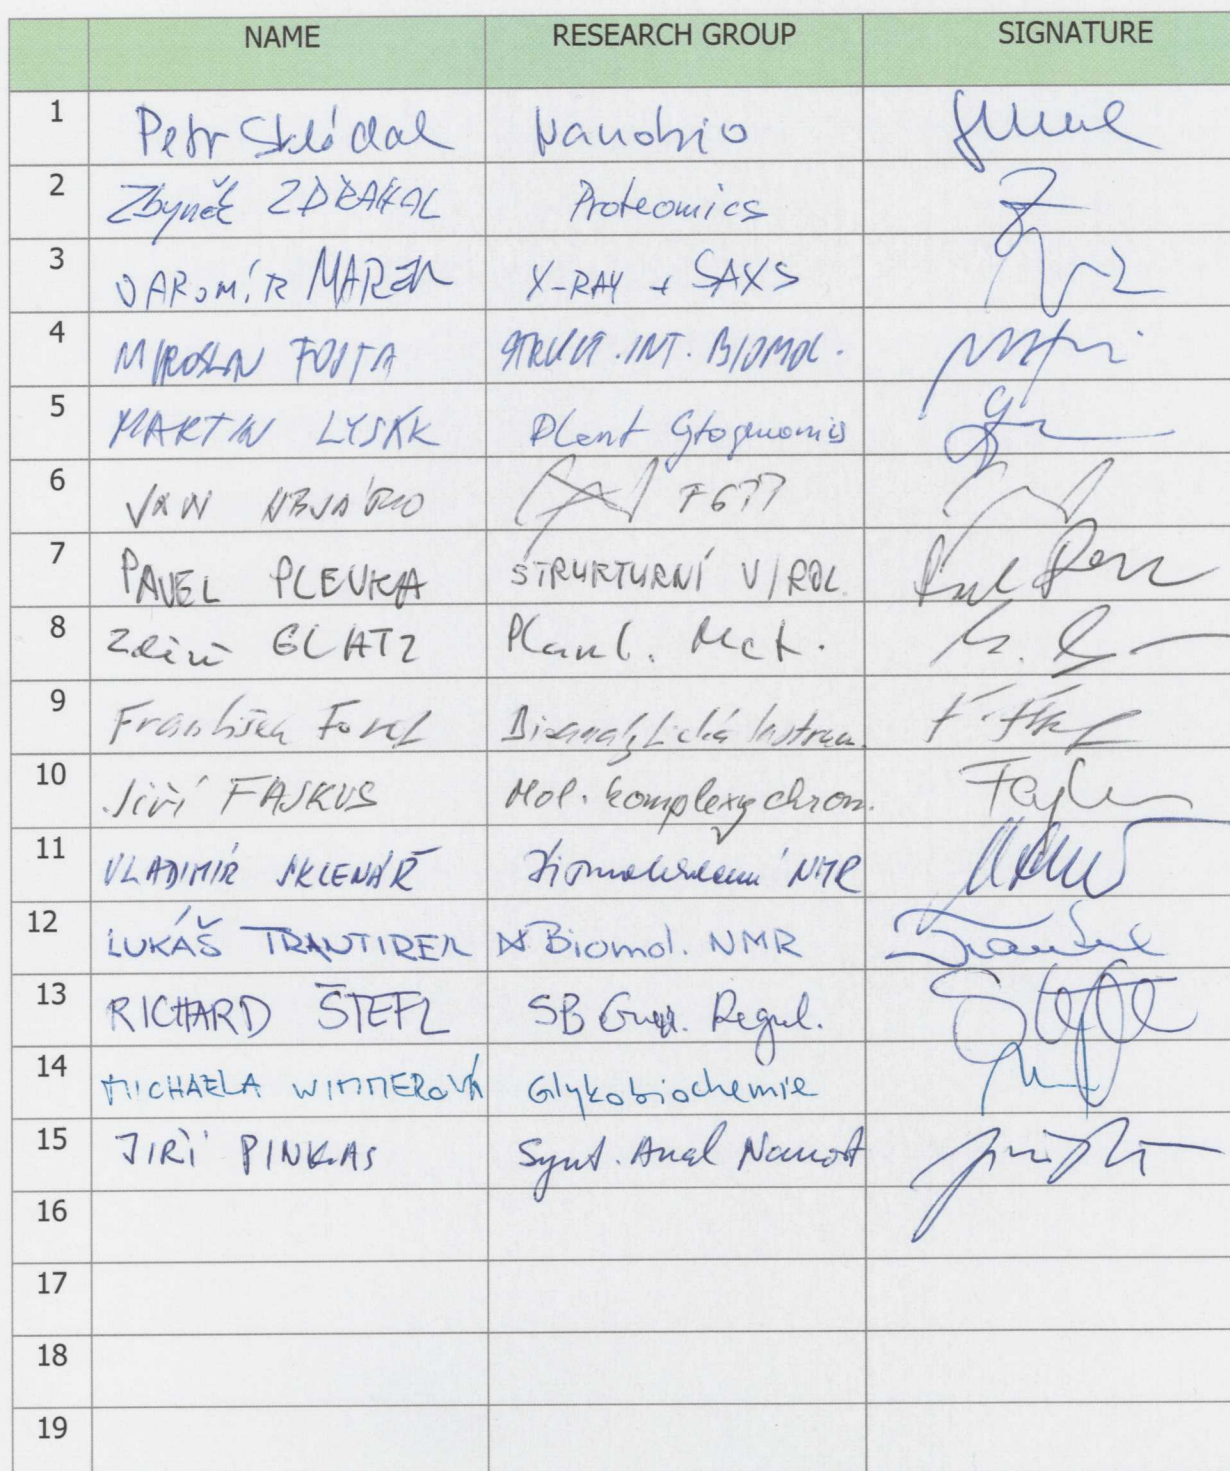 NAME RESEARCH GROUP SIGNATURE
1 Petr Skládal Nanobio
2 Zbyněk ZDRÁHAL Proteomics
3 JAROMÍR MAREK X-RAY + SAXS
4 MIROSLAV FOJTA STRUKT. INT. BIOMOL.
5 MARTIN LYSÁK Plant Cytogenomics
6 JAN
7 PAVEL PLEVKA STRUKTURNÍ VIROL.
8 Zdeněk GLATZ Met.
9 František Foret Bioanalytická Instrum.
10 Jiří FAJKUS Mol. komplexy chrom.
11 VLADIMÍR SKLENÁŘ NMR
12 LUKÁŠ TRANTIREK Biomol. NMR
13 RICHARD ŠTEFL SB Regul.
14 MICHAELA WIMMEROVÁ Glykobiochemie
15 JIŘÍ PINKAS Synt. Anal Nanost
16
17
18
19